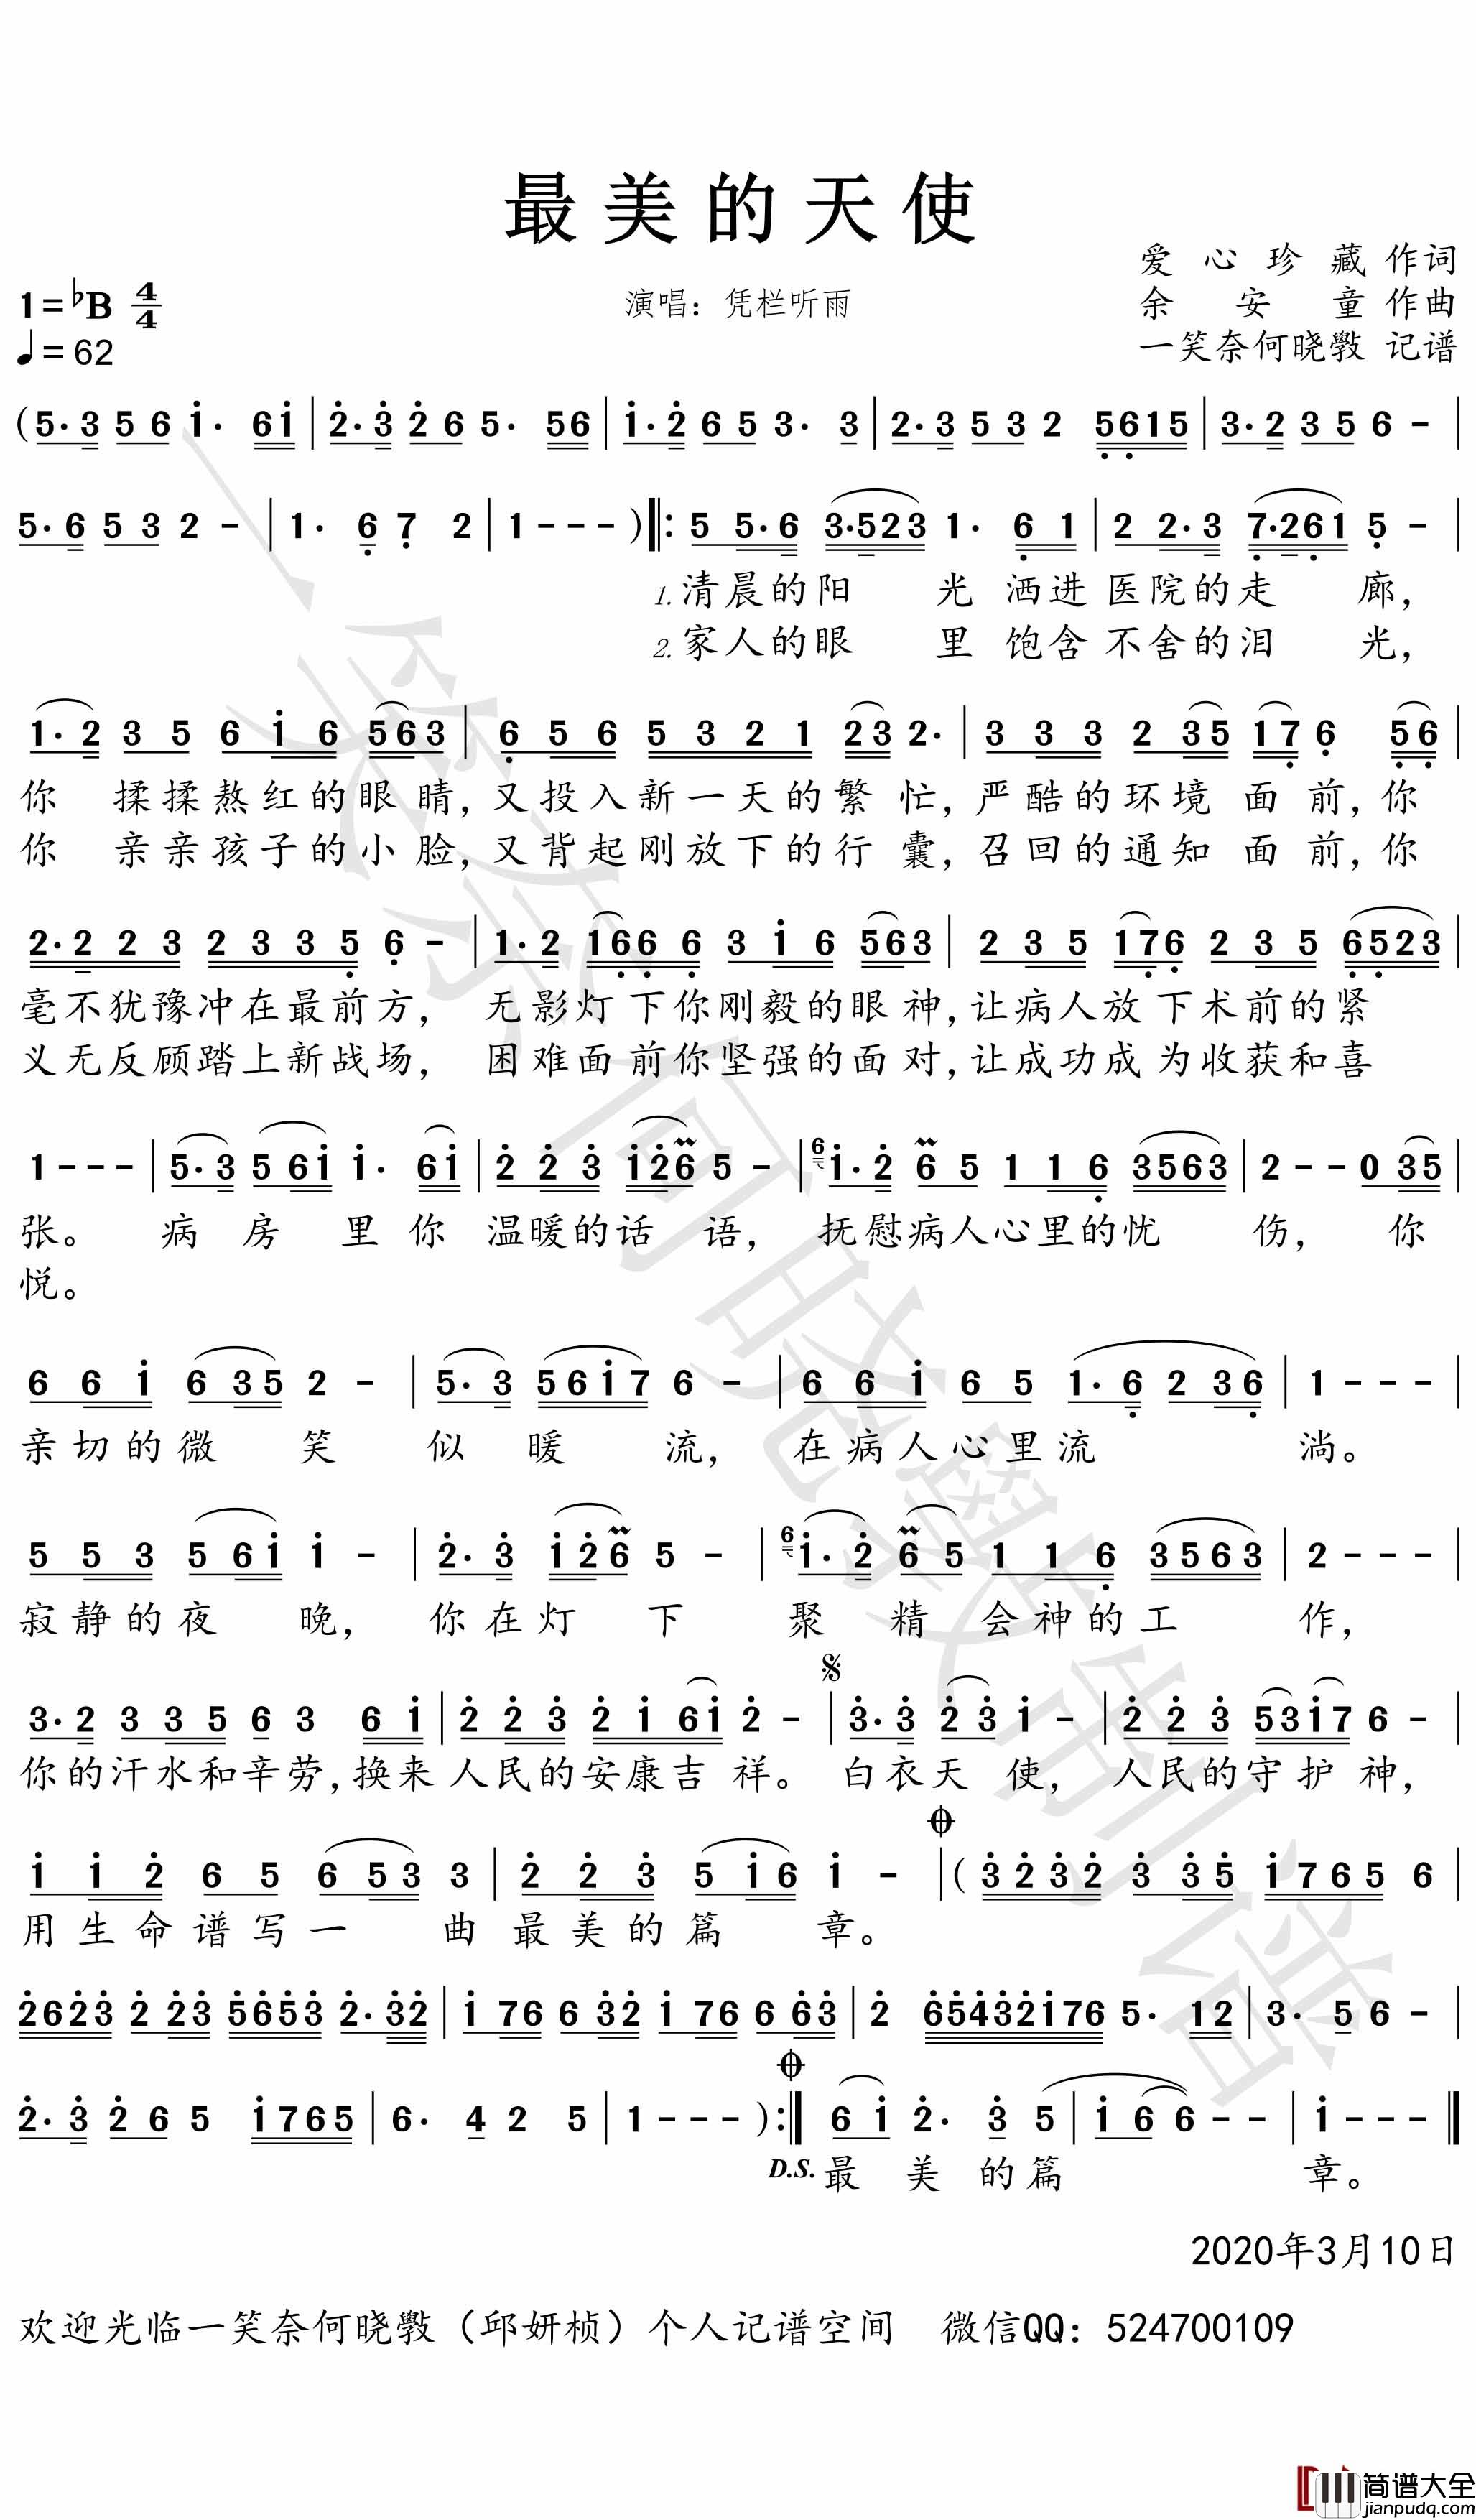 最美的天使
爱心珍藏 作词
1=♭B 4/4 演唱：凭栏听雨 余安童 作曲
♩=62 一笑奈何晓斆 记谱
(5·3 56 i· 6i | 2·3 26 5· 56 | i·2 65 3· 3 | 2·3 53 2 5615 | 3·2 35 6 - |
5·6 53 2 - | 1· 6 7 2 | 1 - - - ) ‖: 5 5·6 3·523 1· 61 | 2 2·3 7·261 5 - |
1.清晨的阳光洒进医院的走廊，
2.家人的眼里饱含不舍的泪光，
1·2 35 6i6 563 | 656 5321 23 2· | 333 235 17 6 56 |
你揉揉熬红的眼睛，又投入新一天的繁忙，严酷的环境面前，你
你亲亲孩子的小脸，又背起刚放下的行囊，召回的通知面前，你
2·223 2335 6 - | 1·2 1666 3i6 563 | 235 176 235 6523 |
毫不犹豫冲在最前方，无影灯下你刚毅的眼神，让病人放下术前的紧
义无反顾踏上新战场，困难面前你坚强的面对，让成功成为收获和喜
1 - - - | 5·3 56i i· 6i | 223 i26 5 - | 6 i·2 65 116 3563 | 2 - - 0 35 |
张。病房里你温暖的话语，抚慰病人心里的忧伤，你
悦。
66i 635 2 - | 5·3 56i7 6 - | 66i 65 1·6 236 | 1 - - - |
亲切的微笑似暖流，在病人心里流淌。
553 56i i - | 2·3 i26 5 - | 6 i·2 65 116 3563 | 2 - - - |
寂静的夜晚，你在灯下聚精会神的工作，
3·2 335 6 3 6i | 223 2i6i 2 - | 𝄋 3·3 23 i - | 223 53i7 6 - |
你的汗水和辛劳，换来人民的安康吉祥。白衣天使，人民的守护神，
ii2 65 653 3 | 223 5i6 i - | 𝄌 (3232 335 i765 6 |
用生命谱写一曲最美的篇章。
2623 223 5653 2·32 | i76 632 i76 663 | 2 65432i76 5· 12 | 3· 5 6 - |
2·3 26 5 i765 | 6· 4 2 5 | 1 - - - ) :‖ 𝄌 6i 2· 3 5 | i6 6 - - | i - - - ‖
D.S. 最美的篇章。
2020年3月10日
欢迎光临一笑奈何晓斆（邱妍桢）个人记谱空间 微信QQ：524700109
一笑奈何晓斆制谱
简谱大全
jianpudq.com